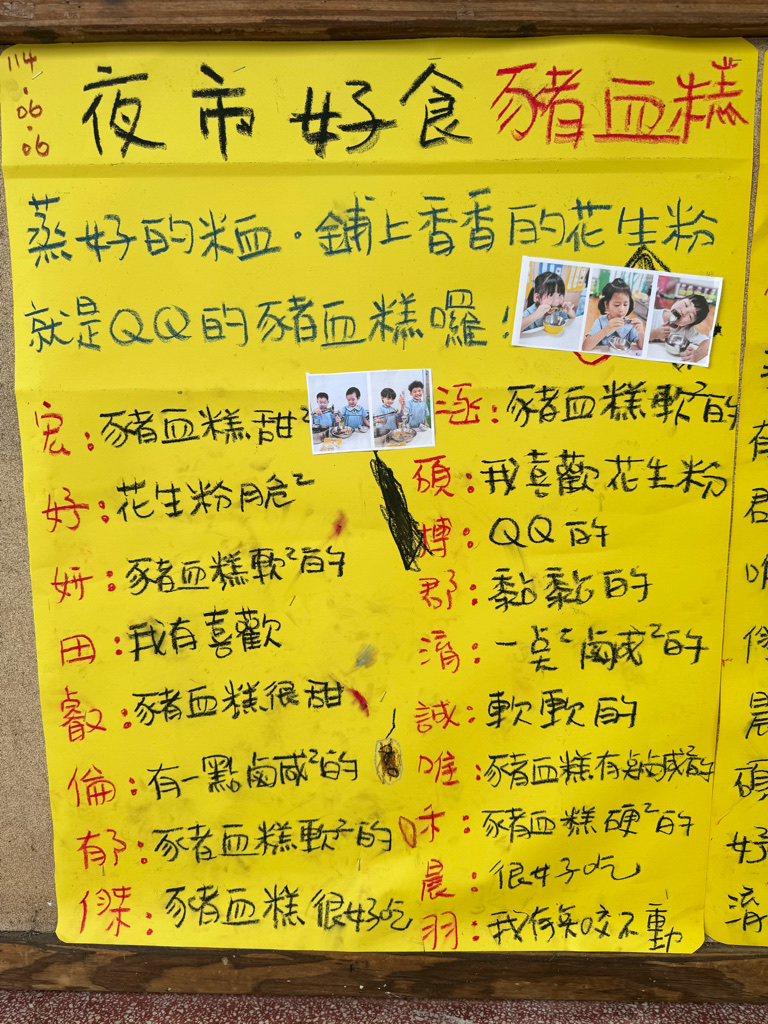 114.06.06
夜市好食豬血糕
蒸好的米血。鋪上香香的花生粉
就是QQ的豬血糕囉!
宏:豬血糕甜²
好:花生粉脆²
妍:豬血糕軟²的
田:我有喜歡
叡:豬血糕很甜
倫:有一點鹵咸²的
郁:豬血糕軟²的
傑:豬血糕很好吃
涵:豬血糕軟²的
碩:我喜歡花生粉
博:QQ的
郡:黏黏的
淯:一点²鹵咸²的
誠:軟軟的
唯:豬血糕有点鹵咸²的
禾:豬血糕硬²的
晨:很好吃
羽:我有咬不動